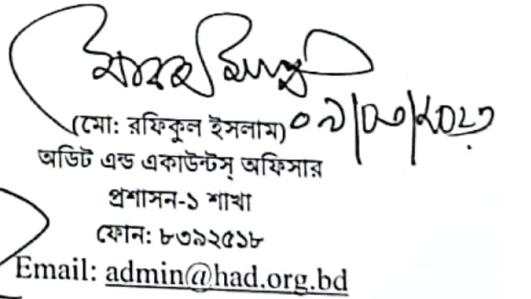 (মো: রফিকুল ইসলাম) ০৯/০৩/২০২৩
অডিট এন্ড একাউন্টস্ অফিসার
প্রশাসন-১ শাখা
ফোন: ৮৩৯২৫১৮
Email: admin@had.org.bd